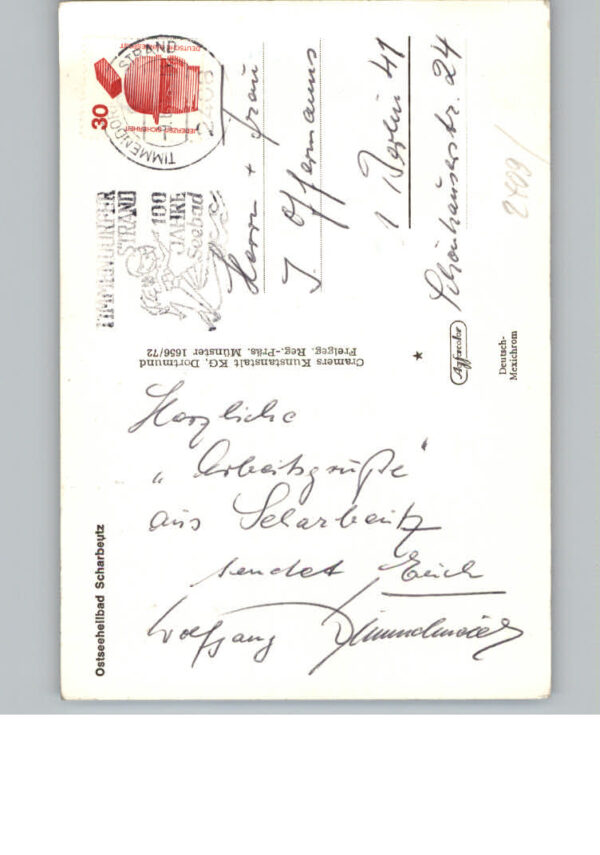 Ostseeheilbad Scharbeutz
Herzliche
„Arbeitsgrüße“
aus Scharbeutz
sendet Euch
Wolfgang
Cramers Kunstanstalt KG, Dortmund
Freigeg. Reg.-Präs. Münster 1656/72
TIMMENDORFER
STRAND
100
JAHRE
Seebad
TIMMENDORFER STRAND
DEUTSCHE BUNDESPOST
JEDERZEIT SICHERHEIT
30
Herrn + Frau
J. Offermanns
1 Berlin 41
Schönhauserstr. 24
2409/
Agfacolor
Deutsch-
Mexichrom